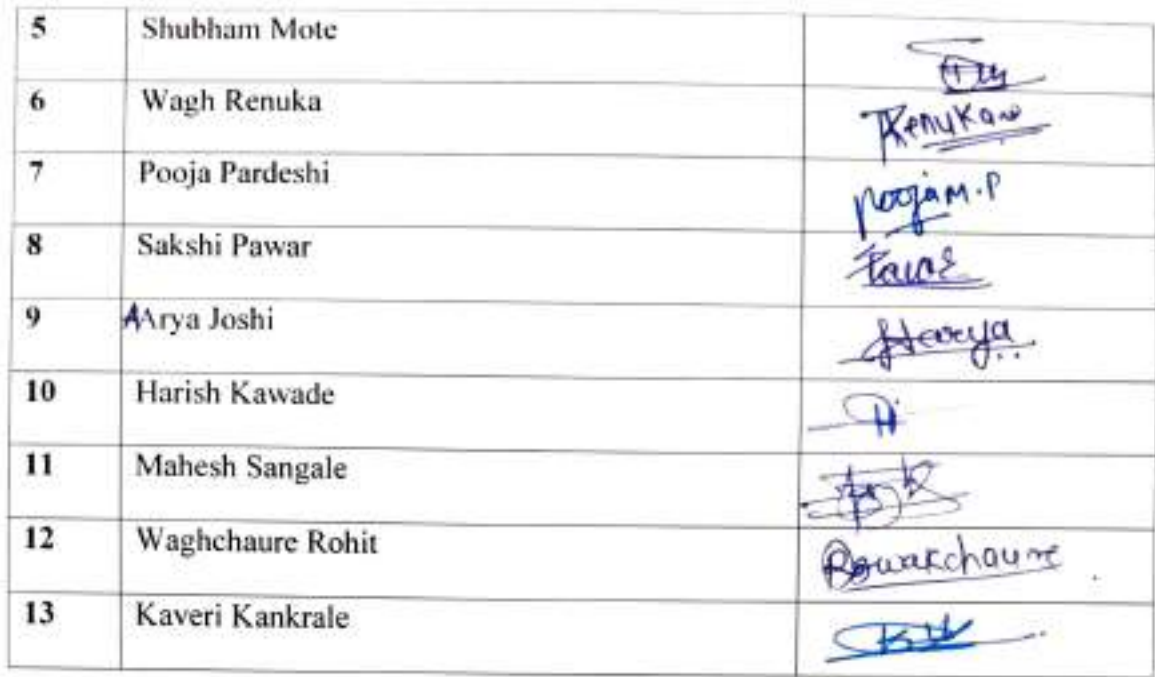 5 Shubham Mote
6 Wagh Renuka Renuka
7 Pooja Pardeshi Pooja M.P
8 Sakshi Pawar
9 AArya Joshi
10 Harish Kawade
11 Mahesh Sangale
12 Waghchaure Rohit
13 Kaveri Kankrale